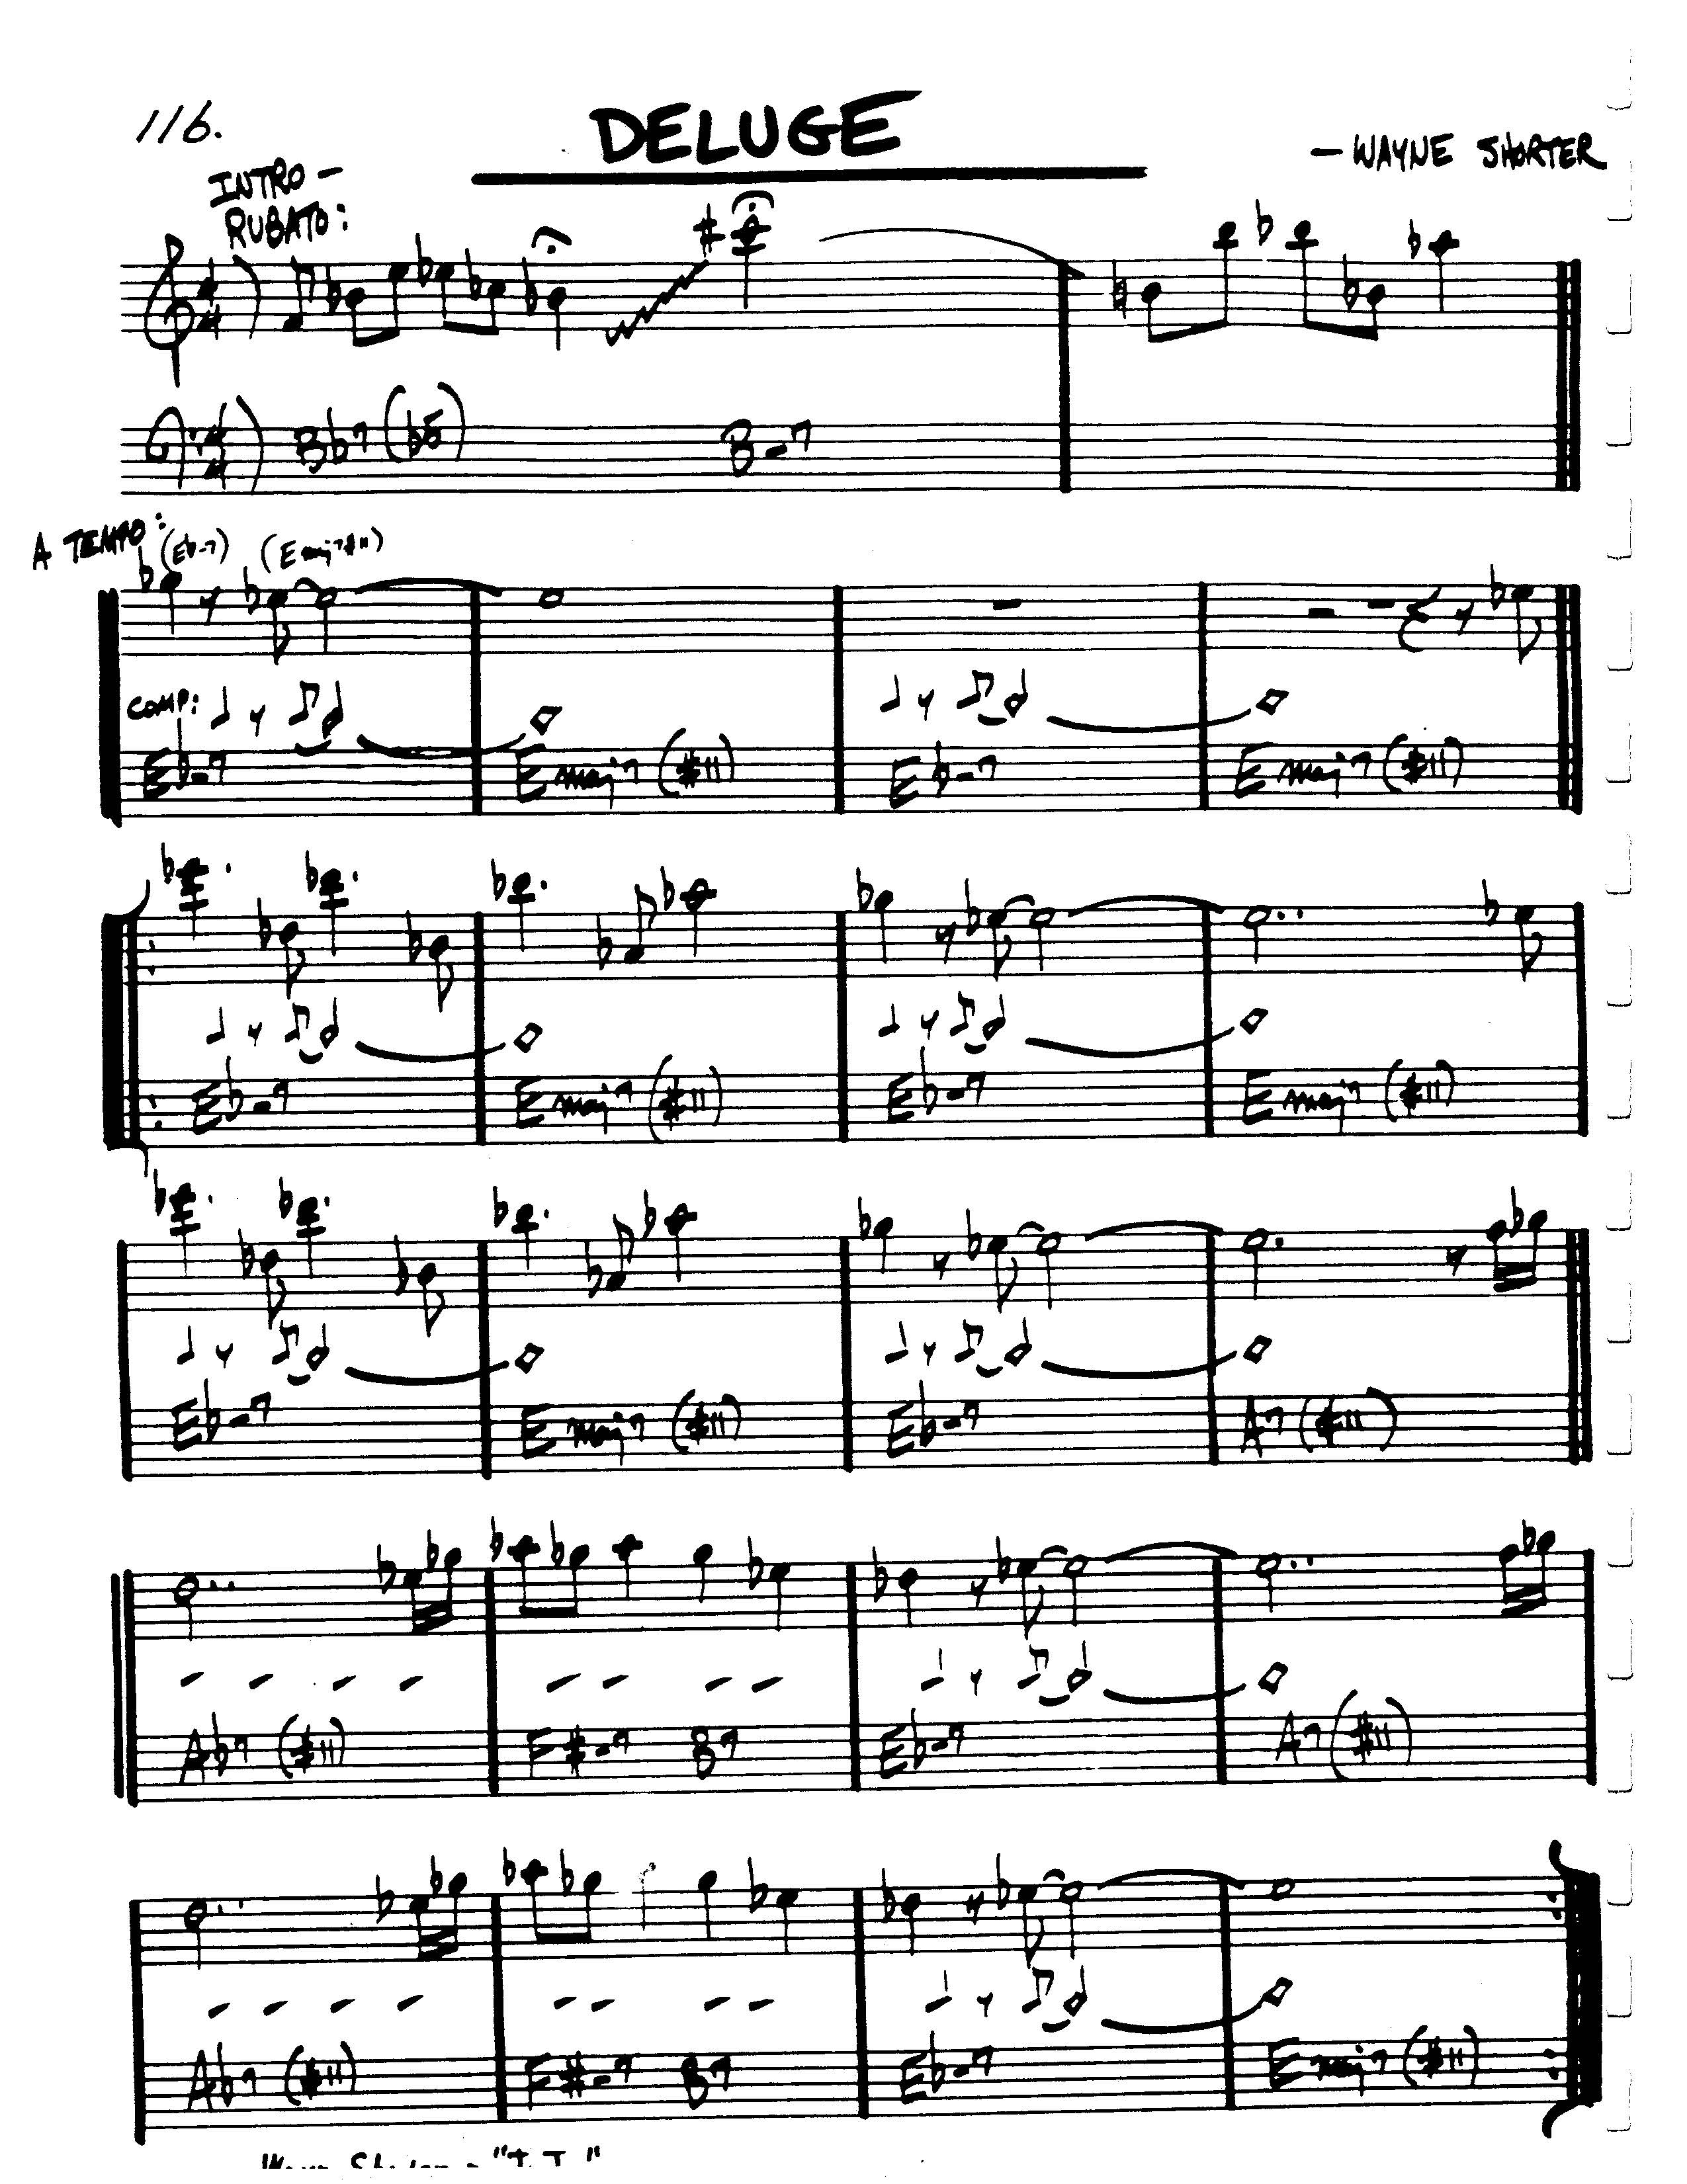 116.
DELUGE
– WAYNE SHORTER
INTRO –
RUBATO:
Bb7 (b5) B-7
A TEMPO: (Eb-7) (Emaj7#11)
COMP:
Eb-7 Emaj7 (#11) Eb-7 Emaj7 (#11)
Eb-7 Emaj7 (#11) Eb-7 Emaj7 (#11)
Eb-7 Emaj7 (#11) Eb-7 A7 (#11)
Ab7 (#11) F#-7 B7 Eb-7 A7 (#11)
Ab7 (#11) F#-7 B7 Eb-7 Emaj7 (#11)